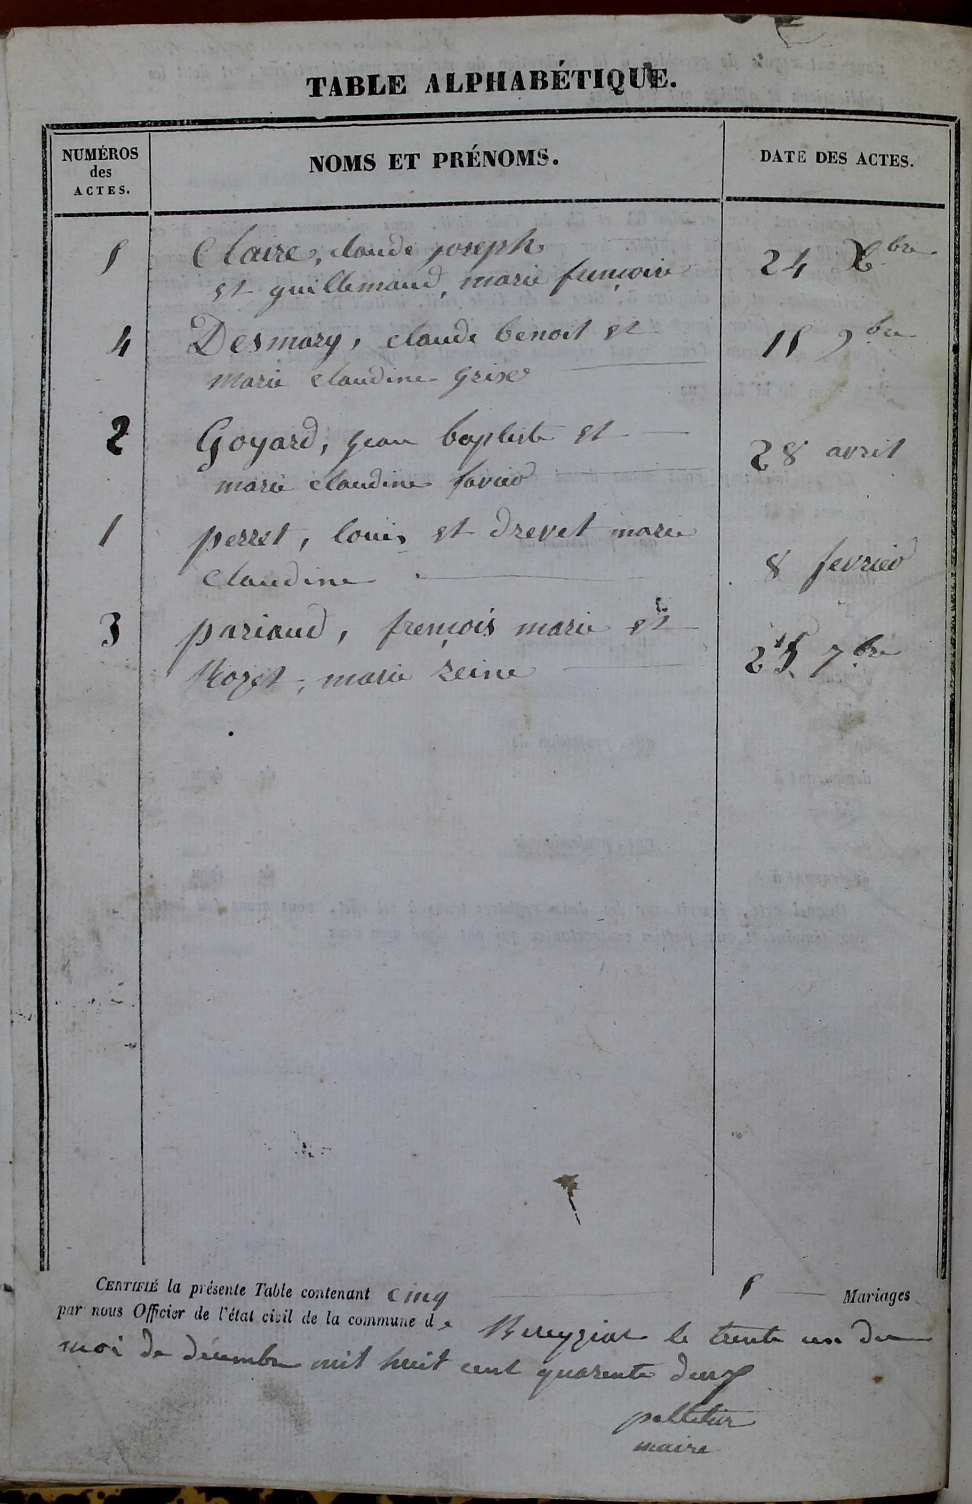 TABLE ALPHABÉTIQUE.
NUMÉROS
des
ACTES.
NOMS ET PRÉNOMS.
DATE DES ACTES.
5 Claire, claude joseph 24 Xbre
et guillemaud, marie françoise
4 Desmary, claude benoit et 15 9bre
marie claudine Grise
2 Goyard, jean baptiste et 28 avril
marie claudine favier
1 perret, louis et drevet marie 8 fevrier
claudine
3 pariaud, françois marie et 25 7bre
Rozet, marie reine
CERTIFIÉ la présente Table contenant cinq 5 Mariages
par nous Officier de l'état civil de la commune de Bereyziat le trente un du
moi de décembre mil huit cent quarente deux
maire